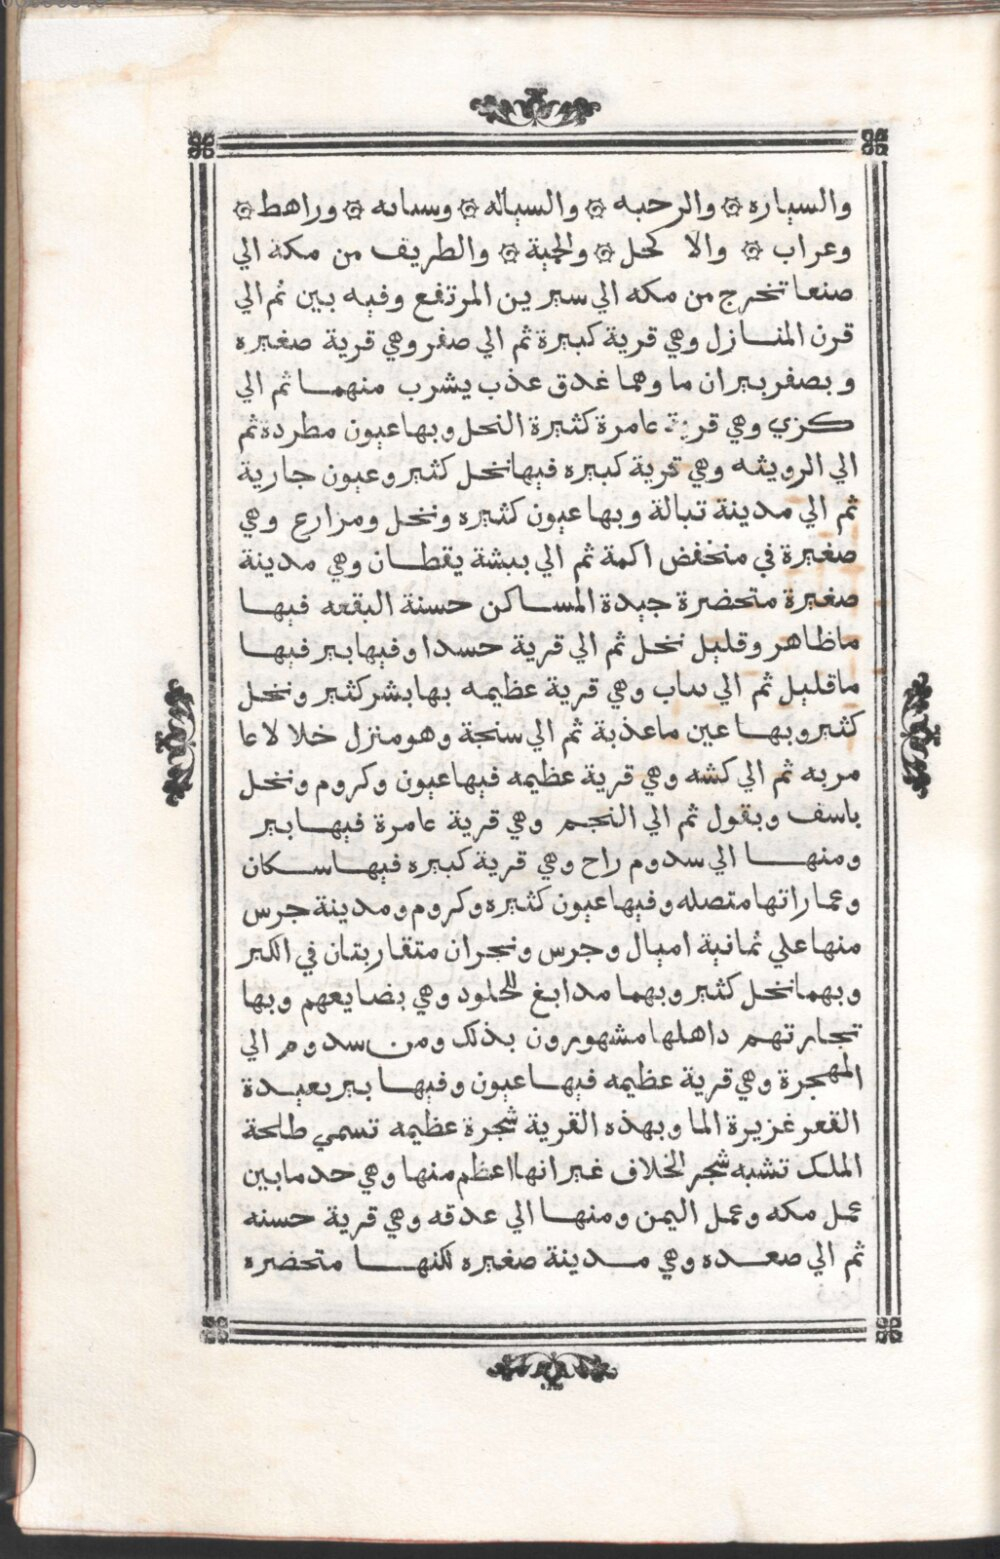 والسياره ۞ والرحبه ۞ والسياله ۞ وسىابه ۞ وراهط ۞
وعراب ۞ والا كحل ۞ والحمية ۞ والطريف من مكة الي
صنعا تخرج من مكه الي سيرين المرتفع وفيه بين ثم الي
قرن المنازل وهي قرية كبيرة ثم الي صفر وهي قرية صغيره
وبصفر بيران ما وهما غدق عذب يشرب منهما ثم الي
كزي وهي قرية عامرة كثيرة النحل وبها عيون مطردة ثم
الي الرويثه وهي قرية كبيره فيها نخل كثير وعيون جارية
ثم الي مدينة تبالة وبها عيون كثيره ونخل ومزارع وهي
صغيرة في منخفض اكمة ثم الي بيشة يقطان وهي مدينة
صغيرة متحضرة جيدة المساكن حسنة البقعه فيها
ماظاهر وقليل نخل ثم الي قرية حسدا وفيها بير فيها
ماقليل ثم الي ىىاب وهي قرية عظيمه بها بشر كثير ونخل
كثير وبها عين ماعذبة ثم الي سنجة وهو منزل خلا لا عا
مر به ثم الي كشه وهي قرية عظيمه فيها عيون وكروم ونخل
باسف وبقول ثم الي النجم وهي قرية عامرة فيها بير
ومنها الي سدوم راح وهي قرية كبيره فيها سكان
وعماراتها متصله وفيها عيون كثيره وكروم ومدينة جرس
منها علي ثمانية اميال وجرس ونجران متقاربتان في الكبر
وبهما نخل كثير وبهما مدابغ للحلود وهي بضايعهم وبها
تجارتهم داهلها مشهورون بذلك ومن سدوم الي
المهجرة وهي قرية عظيمه فيها عيون وفيها بير بعيدة
القعر غزيرة الما وبهذه القرية شجرة عظيمه تسمي طلحة
الملك تشبه شجر الخلاف غير انها اعظم منها وهي حد مابين
عمل مكه وعمل اليمن ومنها الي عدقه وهي قرية حسنه
ثم الي صعده وهي مدينة صغيره لكنها متحضره